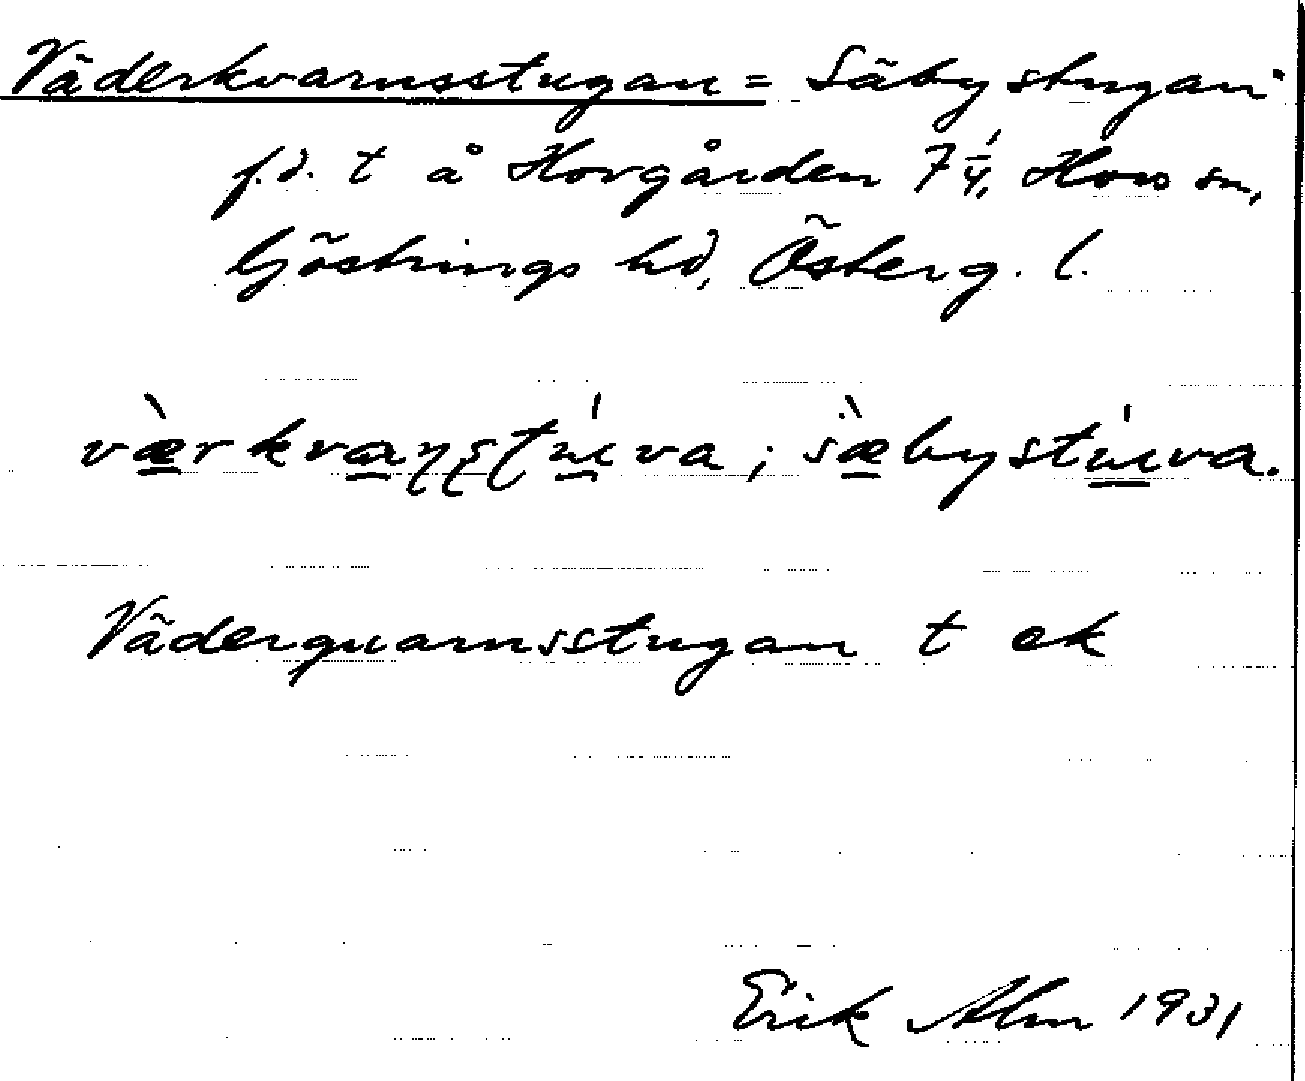 Väderkvarnsstugan = Säbystugan
f.d. t å Hovgården 7 1/4, Hovs sn,
Göstrings hd, Österg. l.
væ̀rkvaɳʂʈúɩva; sæ̀bystúɩva.
Väderquarnsstugan t ek
Erik Alm 1931